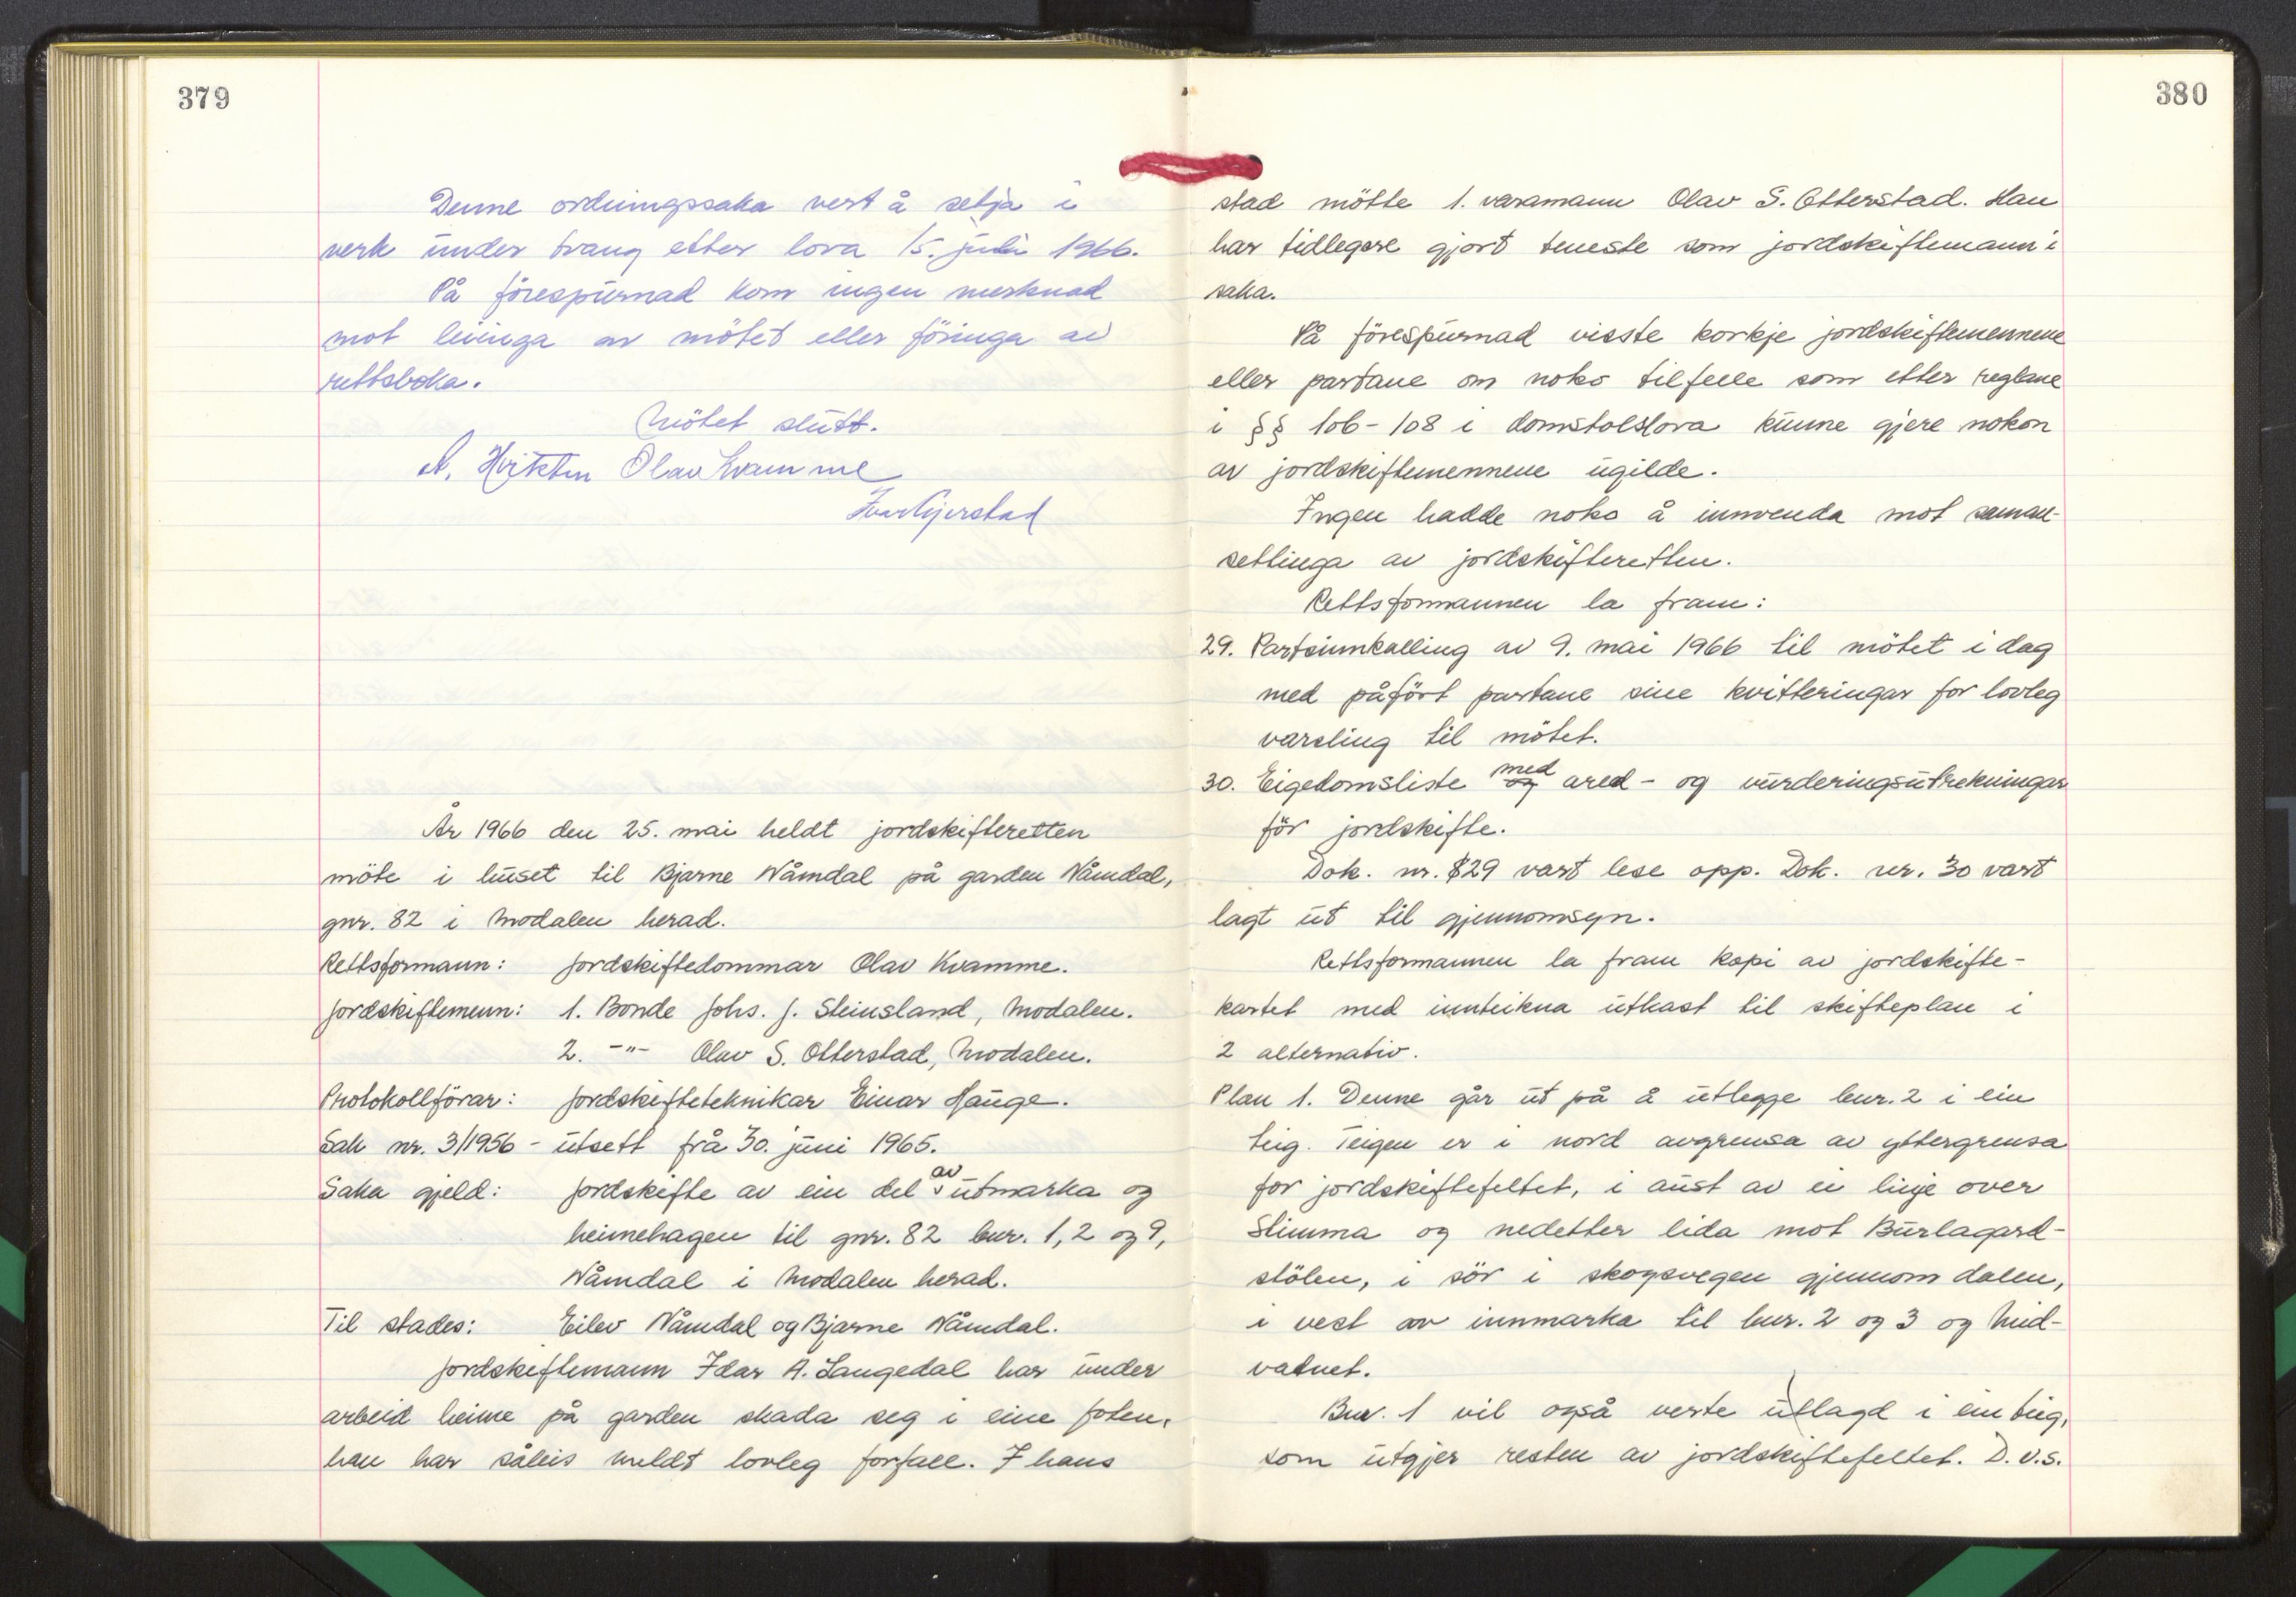 379
Denne ordningssaka vert å setja i
verk under tvang etter lova 15. juli 1966.
På förespurnad kom ingen merknad
mot leiinga av mötet eller föringa av
rettsboka.
Mötet slutt.
A. Hviktin Olav Kvamme
Ivar Gjerstad
År 1966 den 25. mai heldt jordskifteretten
möte i huset til Bjarne Nåmdal på garden Nåmdal,
gnr. 82 i Modalen herad.
Rettsformann: Jordskiftedommar Olav Kvamme.
Jordskiftemenn: 1. Bonde Johs. J. Steinsland, Modalen.
2. -"- Olav S. Otterstad, Modalen.
Protokollförar: Jordskifteteknikar Einar Hauge.
Sak nr. 3/1956 - utsett frå 30. juni 1965.
Saka gjeld: Jordskifte av ein del av utmarka og
heimehagen til gnr. 82 bnr. 1, 2 og 9,
Nåmdal i Modalen herad.
Til stades: Eilev Nåmdal og Bjarne Nåmdal.
Jordskiftemann Idar A. Langedal har under
arbeid heime på garden skada seg i eine foten,
han har såleis meldt lovleg forfall. I hans
380
stad mötte 1. varamann Olav S. Otterstad. Han
har tidlegare gjort teneste som jordskiftemann i
saka.
På förespurnad visste korkje jordskiftemennene
eller partane om noko tilfelle som etter reglane
i §§ 106-108 i domstolslova kunne gjere nokon
av jordskiftemennene ugilde.
Ingen hadde noko å innvenda mot saman-
setlinga av jordskifteretten.
Rettsformannen la fram:
29. Partsinnkalling av 9. mai 1966 til mötet i dag
med påfört partane sine kvitteringar for lovleg
varsling til mötet.
30. Eigedomsliste og med areal- og vurderingsutrekningar
för jordskifte.
Dok. nr. 29 vart lese opp. Dok. nr. 30 vart
lagt ut til gjennomsyn.
Rettsformannen la fram kopi av jordskifte-
kartet med innteikna utkast til skifteplan i
2 alternativ.
Plan 1. Denne går ut på å utlegge bnr. 2 i ein
teig. Teigen er i nord avgrensa av yttergrensa
for jordskiftefeltet, i aust av ei linje over
Slimma og nedetter lida mot Burlagard-
stölen, i sör i skogsvegen gjennom dalen,
i vest av innmarka til bnr. 2 og 3 og Mid-
vatnet.
Bnr. 1 vil også verte utlagd i ein teig,
som utgjer resten av jordskiftefeltet. D.v.s.